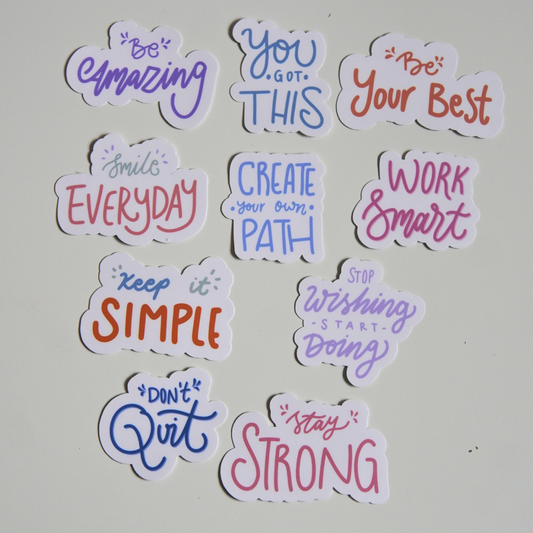 Be
Amazing
You
GOT
THIS
Be
Your Best
Smile
EVERYDAY
CREATE
your own
PATH
WORK
Smart
Keep it
SIMPLE
STOP
Wishing
- START -
Doing
DON'T
Quit
Stay
STRONG